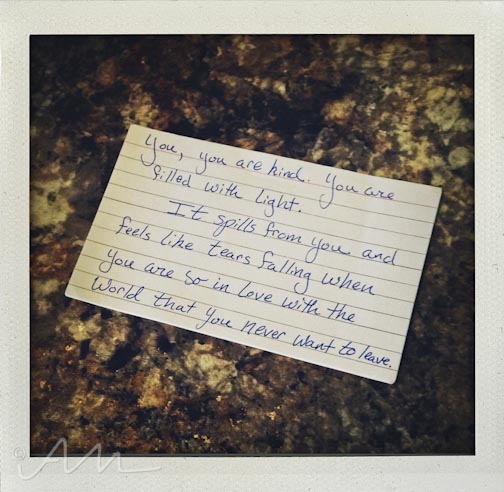 You, you are kind. You are
filled with light.
It spills from you and
feels like tears falling when
you are so in love with the
world that you never want to leave.
© AM